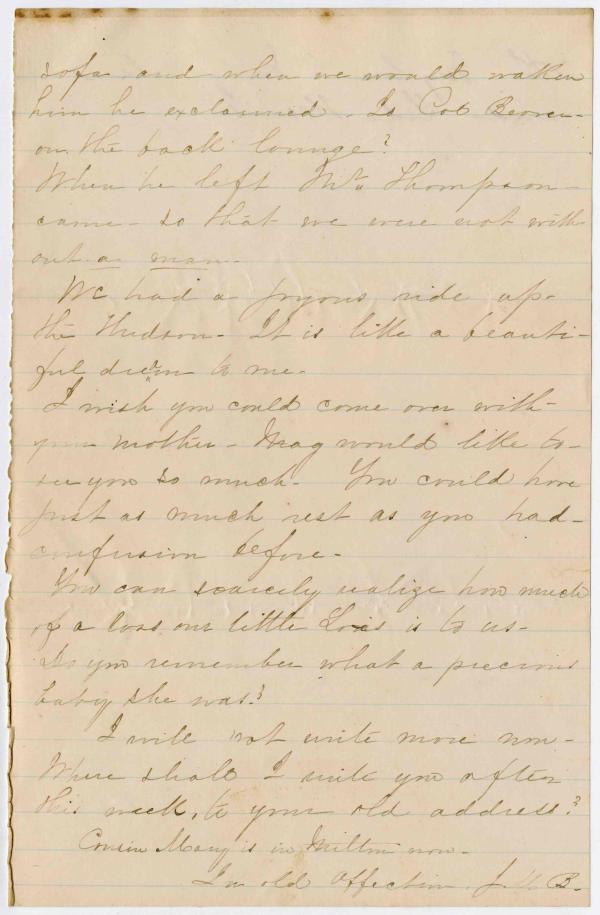 sofa and when we would waken
him he exclaimed. Is Col Beaver
on the back lounge?
When he left Mr. Thompson -
came - so that we were not with-
out a man -
We had a joyous ride up
the Hudson - It is like a beauti-
ful dream to me -
I wish you could come over with -
your mother - Mag would like to -
see you so much - You could have
just as much rest as you had -
confusion before -
You can scarcely realize how much
of a loss our little Lois is to us -
Do you remember what a precious
baby she was?
I will not write more now -
Where shall I write you after
this week, to your old address?
Cousin Mary is in Milton now -
In old affection, J. M. B.